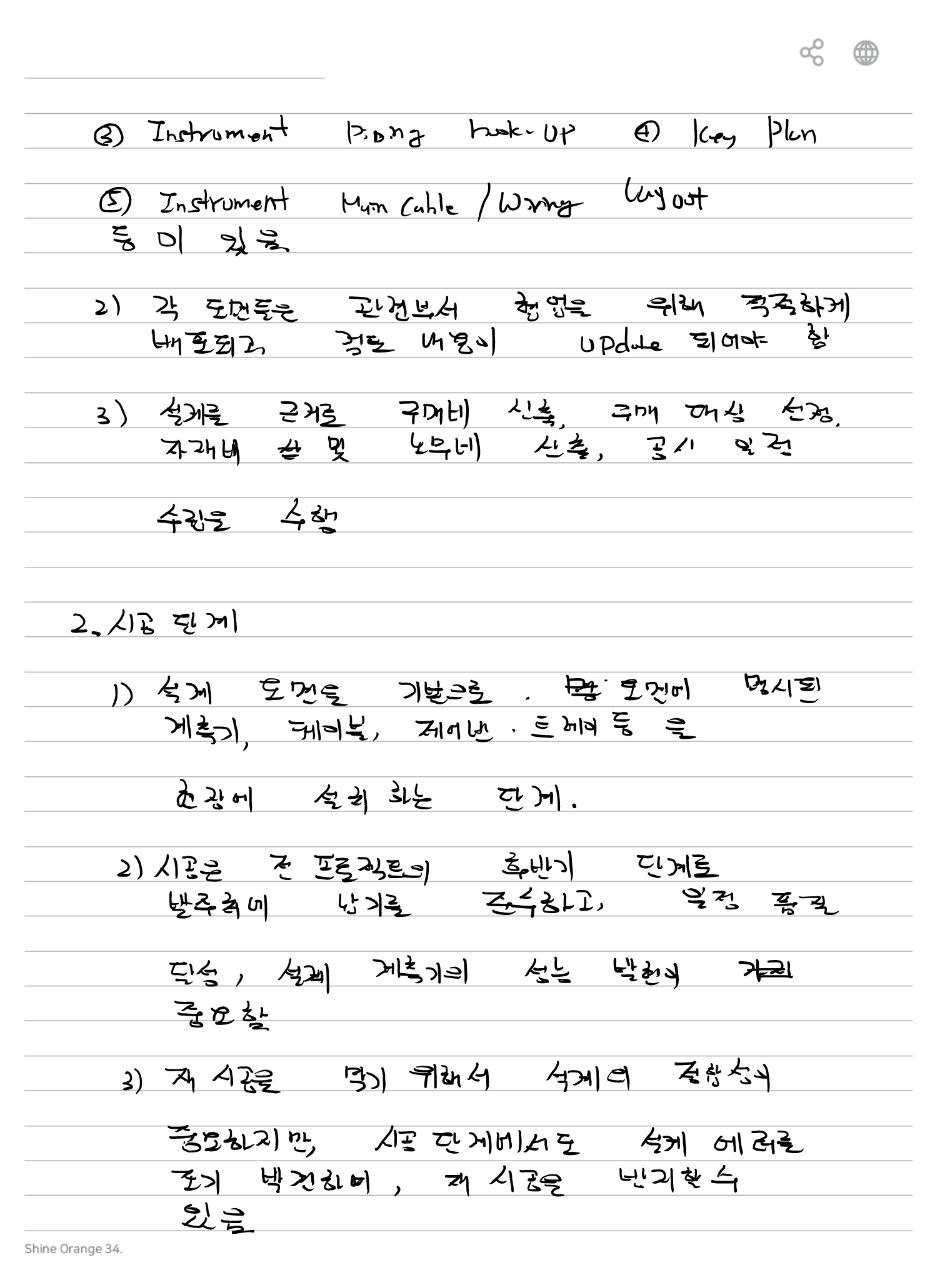 ③ Instrument Piping hook-up ④ Key Plan
⑤ Instrument Main Cable / Wiring Layout
등 이 있음
2) 각 도면들은 관련부서 협업을 위해 적절하게
배포되고 검토 내용이 update 되어야 함
3) 설계를 근거로 구매비 산출, 구매 대상 선정,
자재비 및 노무비 산출, 공사 일정
수립을 수행
2. 시공 단계
1) 설계 도면을 기반으로. 도면에 명시된
계측기, 케이블, 제어반. 트레이 등 을
현장에 설치 하는 단계.
2) 시공은 전 프로젝트의 후반기 단계로
발주처에 납기를 준수하고, 일정 품질
달성, 설계 계측기의 성능 발현이
중요함
3) 재 시공을 막기 위해서 설계의 정합성이
중요하지만, 시공 단계에서도 설계 에러를
조기 발견하여, 재 시공을 방지할 수
있음
Shine Orange 34.